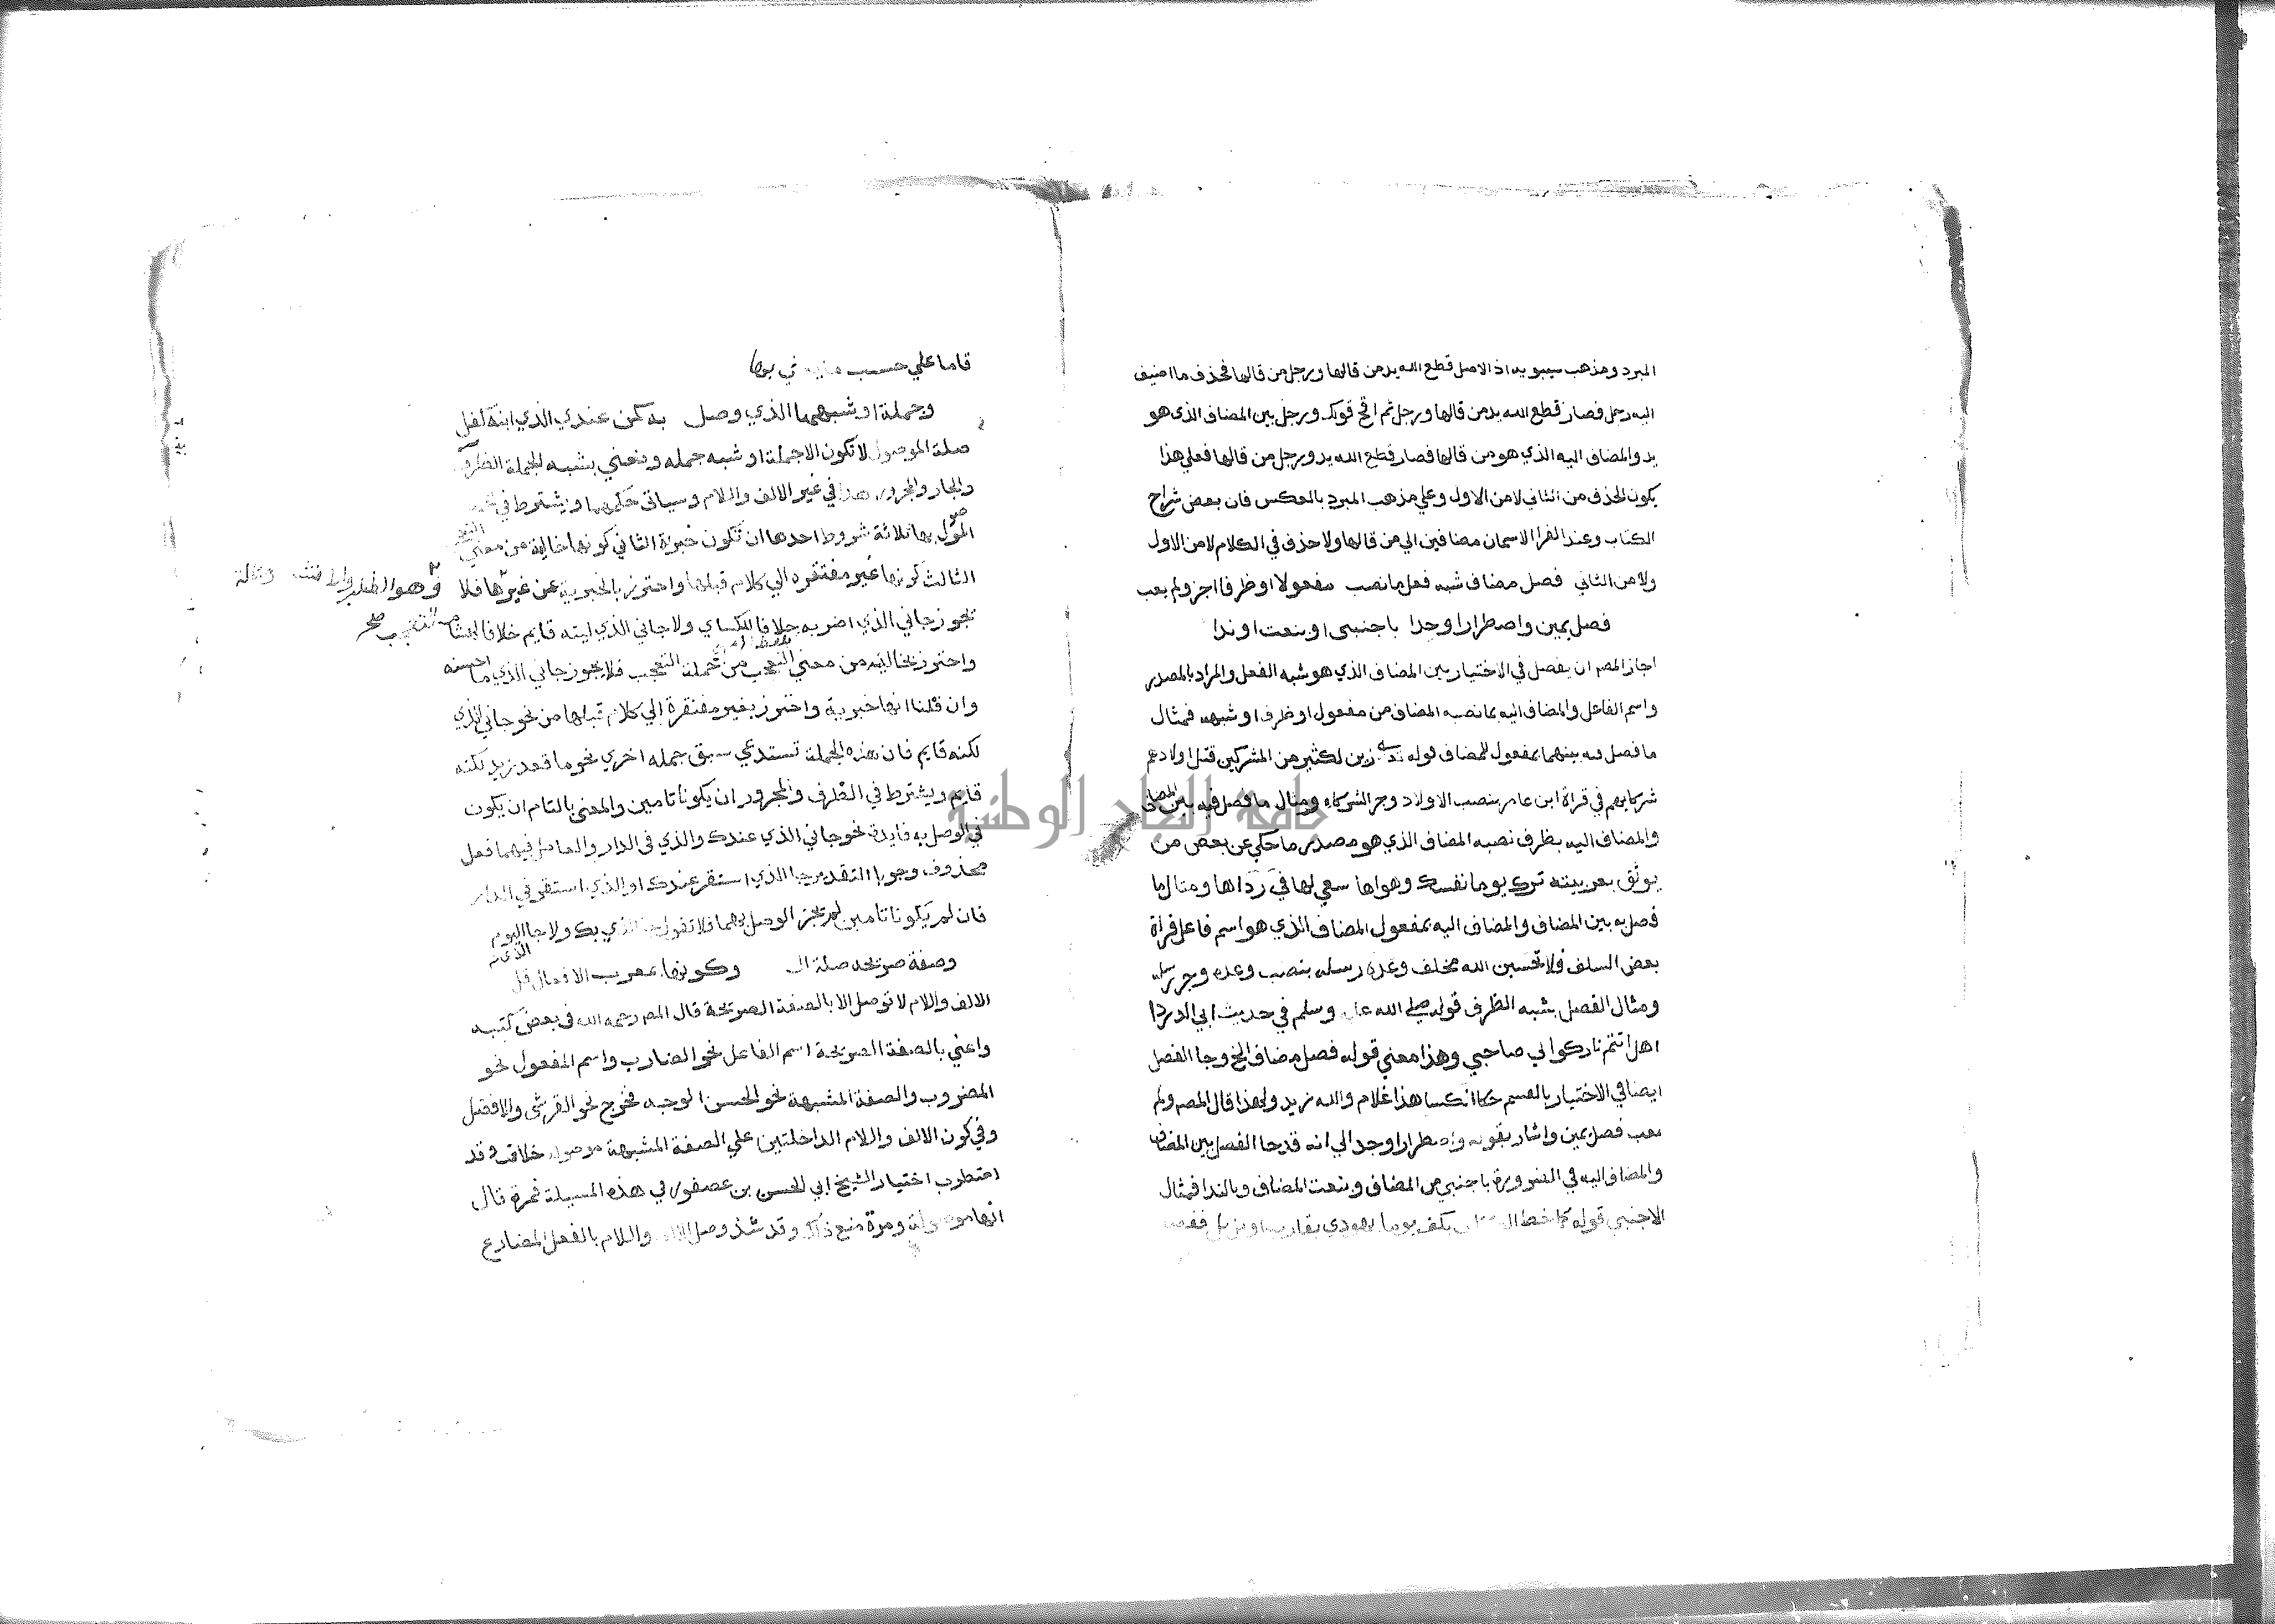 المبرد ومذهب سيبويه اذ الاصل قطع الله يد من قالها ورجل من قالها فحذف ما اضيف
اليه رجل فصار قطع الله يد من قالها ورجل ثم اقحم قولك ورجل بين المضاف الذي هو
يد والمضاف اليه الذي هو من قالها فصار قطع الله يد ورجل من قالها فعلي هذا
يكون الحذف من الثاني لا من الاول وعلي مذهب المبرد بالعكس قال بعض شراح
الكتاب وعند الفرا الاسمان مضافين الي من قالها ولا حذف في الكلام لا من الاول
ولا من الثاني فصل مضاف شبه فعل ما نصب مفعولا او ظرفا اجز ولم يعب
فصل يمين واضطرارا وجدا باجنبي او بنعت او ندا
اجاز المص ان يفصل في الاختيار بين المضاف الذي هو شبه الفعل والمراد بالمصدر
واسم الفاعل والمضاف اليه بما نصبه المضاف من مفعول او ظرف او شبهه فمثال
ما فصل فيه بينهما بمفعول المضاف قوله زين لكثير من المشركين قتل اولادهم
شركايهم في قراة ابن عامر بنصب الاولاد وجر الشركاء ومثال ما فصل فيه بين المضاف
والمضاف اليه بظرف نصبه المضاف الذي هو مصدر ما حكي عن بعض من
يوثق بعربيته ترك يوما نفسك وهواها سعي لها في رداها ومثال ما
فصل به بين المضاف والمضاف اليه بمفعول المضاف الذي هو اسم فاعل قراة
بعض السلف فلا تحسبن الله مخلف وعده رسله بنصب وعده وجر رسله
ومثال الفصل بشبه الظرف قوله صلي الله عليه وسلم في حديث ابي الدردا
هل انتم تاركوا لي صاحبي وهذا معني قوله فصل مضاف الخ وجا الفصل
ايضا في الاختيار بالقسم حكا الكسا هذا غلام والله زيد ولهذا قال المص ولم
يعب فصل يمين واشار بقوله واضطرارا وجد الي انه قد جا الفصل بين المضاف
والمضاف اليه في الضرورة باجنبي من المضاف وبنعت المضاف وبالندا فمثال
الاجنبي قوله كما خط الكتاب بكف يوما يهودي يقارب او يزيل ففصل
قاما علي حسب
وجملة او شبهها الذي وصل به كمن عندي الذي ابنه كفل
صلة الموصول لا تكون الا جملة او شبه جمله ونعني بشبه الجملة الظرف
والجار والمجرور هذا في غير الالف واللام وسياتي حكمها ويشترط في
الموصول بها ثلاثة شروط احدها ان تكون خبرية الثاني كونها خالية من معني التعجب
الثالث كونها غير مفتقره الي كلام قبلها واحترز بالخبرية عن غيرها فلا وهو الطلبية
يجوز جاني الذي اضربه خلافا للكساي ولا جاني الذي ليته قايم خلافا لهشام
واحترز بخالية من معني التعجب من جملة التعجب فلا يجوز جاني الذي ما احسنه
وان قلنا انها خبرية واحترز بغير مفتقرة الي كلام قبلها من نحو جاني الذي
لكنه قايم فان هذه الجملة تستدعي سبق جمله اخري نحو ما قعد زيد لكنه
قايم ويشترط في الظرف والمجرور ان يكونا تامين والمعني بالتام ان يكون
في الوصل به فايدة نحو جاني الذي عندك والذي في الدار والعامل فيهما فعل
محذوف وجوبا التقدير جا الذي استقر عندك او الذي استقر في الدار
فان لم يكونا تامين لم يجز الوصل بهما فلا تقول جا الذي بك ولا جا الذي اليوم
وصفة صريحه صلة ال وكونها بمعرب الافعال قل
الالف واللام لا توصل الا بالصفة الصريحة قال المص رحمه الله في بعض كتبه
واعني بالصفة الصريحة اسم الفاعل نحو الضارب واسم المفعول نحو
المضروب والصفة المشبهة نحو الحسن الوجه فخرج نحو القرشي والافضل
وفي كون الالف واللام الداخلتين علي الصفة المشبهة موصوله خلاف وقد
اضطرب اختيار الشيخ ابي الحسن بن عصفور في هذه المسيلة فمرة قال
انها موصولة ومرة منع ذلك وقد شذ وصل الالف واللام بالفعل المضارع
جامعة النجاح الوطنية